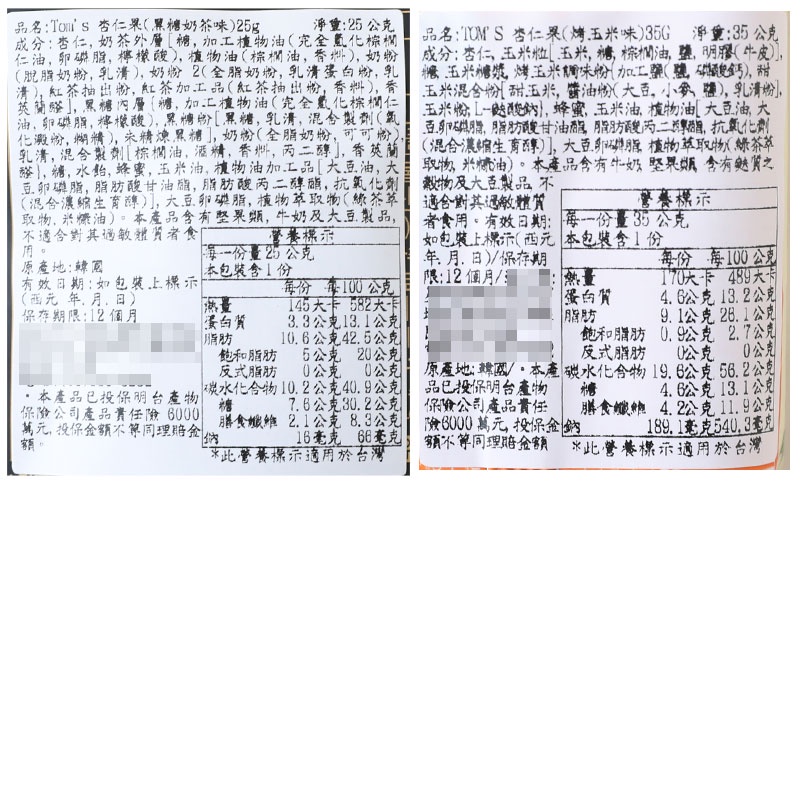 品名:Tom's 杏仁果(黑糖奶茶味)25g 淨重:25 公克
成分:杏仁, 奶茶外層[糖, 加工植物油(完全氫化棕櫚
仁油, 卵磷脂, 檸檬酸), 植物油(棕櫚油, 香料), 奶粉
(脫脂奶粉, 乳清), 奶粉 2(全脂奶粉, 乳清蛋白粉, 乳
清), 紅茶抽出粉, 紅茶加工品(紅茶抽出粉, 香料), 香
莢蘭醛], 黑糖內層[糖, 加工植物油(完全氫化棕櫚仁
油, 卵磷脂, 檸檬酸), 黑糖粉[黑糖, 乳清, 混合製劑(氧
化澱粉, 糊精), 未精煉黑糖], 奶粉(全脂奶粉, 可可粉),
乳清, 混合製劑[棕櫚油, 酒精, 香料, 丙二醇], 香莢蘭
醛], 糖, 水飴, 蜂蜜, 玉米油, 植物油加工品[大豆油, 大
豆卵磷脂, 脂肪酸甘油酯, 脂肪酸丙二醇酯, 抗氧化劑
(混合濃縮生育醇)], 大豆卵磷脂, 植物萃取物(綠茶萃
取物, 米糠油)。本產品含有堅果類, 牛奶及大豆製品,
不適合對其過敏體質者食
用。
原產地:韓國
有效日期:如包裝上標示
(西元 年. 月. 日)
保存期限:12 個月
・本產品已投保明台產物
保險公司產品責任險 6000
萬元, 投保金額不等同理賠金
額。
營養標示
每一份量 25 公克
本包裝含 1 份
每份 每 100 公克
熱量 145 大卡 582 大卡
蛋白質 3.3 公克 13.1 公克
脂肪 10.6 公克 42.5 公克
飽和脂肪 5 公克 20 公克
反式脂肪 0 公克 0 公克
碳水化合物 10.2 公克 40.9 公克
糖 7.6 公克 30.2 公克
膳食纖維 2.1 公克 8.3 公克
鈉 16 毫克 66 毫克
*此營養標示適用於台灣
品名:TOM'S 杏仁果(烤玉米味)35G 淨重:35 公克
成分:杏仁, 玉米粒[玉米, 糖, 棕櫚油, 鹽, 明膠(牛皮)],
糖, 玉米糖漿, 烤玉米調味粉[加工鹽(鹽, 磷酸鈣), 甜
玉米混合粉[甜玉米, 鹽, 醬油粉(大豆, 小麥, 鹽), 乳清粉],
玉米粉, L-麩酸鈉], 蜂蜜, 玉米油, 植物油[大豆油, 大
豆卵磷脂, 脂肪酸甘油酯, 脂肪酸丙二醇酯, 抗氧化劑
(混合濃縮生育醇)], 大豆卵磷脂, 植物萃取物(綠茶萃
取物, 米糠油)。本產品含有牛奶, 堅果類, 含有麩質之
穀物及大豆製品, 不
適合對其過敏體質
者食用。有效日期:
如包裝上標示(西元
年. 月. 日)/保存期
限:12 個月/
原產地:韓國/・本產
品已投保明台產物
保險公司產品責任
險6000 萬元, 投保金
額不等同理賠金額
營養標示
每一份量 35 公克
本包裝含 1 份
每份 每 100 公克
熱量 170 大卡 489 大卡
蛋白質 4.6 公克 13.2 公克
脂肪 9.1 公克 26.1 公克
飽和脂肪 0.9 公克 2.7 公克
反式脂肪 0 公克 0 公克
碳水化合物 19.6 公克 56.2 公克
糖 4.6 公克 13.1 公克
膳食纖維 4.2 公克 11.9 公克
鈉 189.1 毫克 540.3 毫克
*此營養標示適用於台灣